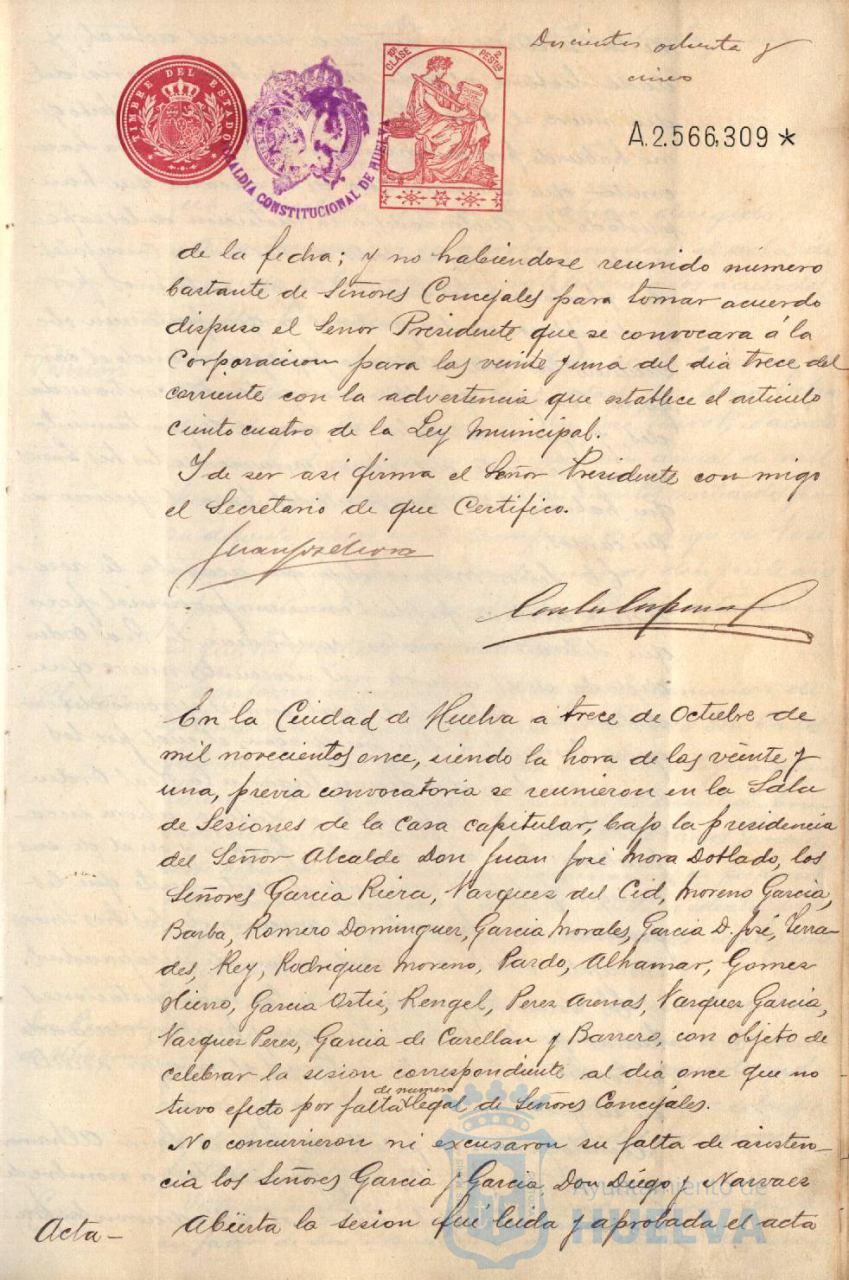 Doscientos ochenta y
cinco
TIMBRE DEL ESTADO
ALCALDIA CONSTITUCIONAL DE HUELVA
10ª CLASE
2 PESETAS
A.2.566,309 *
de la fecha; y no habiéndose reunido número
bastante de Señores Concejales para tomar acuerdo
dispuso el Señor Presidente que se convocara á la
Corporacion para las veinte y una del dia trece del
corriente con la advertencia que establece el articulo
ciento cuatro de la Ley Municipal.
Y de ser asi firma el Señor Presidente con migo
el Secretario de que Certifico.
Juan José Mora
En la Ciudad de Huelva a trece de Octubre de
mil novecientos once, siendo la hora de las veinte y
una, previa convocatoria se reunieron en la Sala
de Sesiones de la Casa capitular, bajo la presidencia
del Señor Alcalde Don Juan José Mora Doblado, los
Señores Garcia Riera, Vazquez del Cid, Moreno Garcia,
Barba, Romero Dominguez, Garcia Morales, Garcia D. José, Terra-
des, Rey, Rodriguez Moreno, Pardo, Alhamar, Gomez
Hierro, Garcia Ortiz, Rengel, Perez Arenas, Vazquez Garcia,
Vazquez Perez, Garcia de Carellan y Barrero, con objeto de
celebrar la sesion correspondiente al dia once que no
tuvo efecto por falta de numero legal de Señores Concejales.
No concurrieron ni excusaron su falta de asisten-
cia los Señores Garcia y Garcia, Don Diego y Narvaez
Acta- Abierta la sesion fué leida y aprobada el acta
Ayuntamiento de
HUELVA